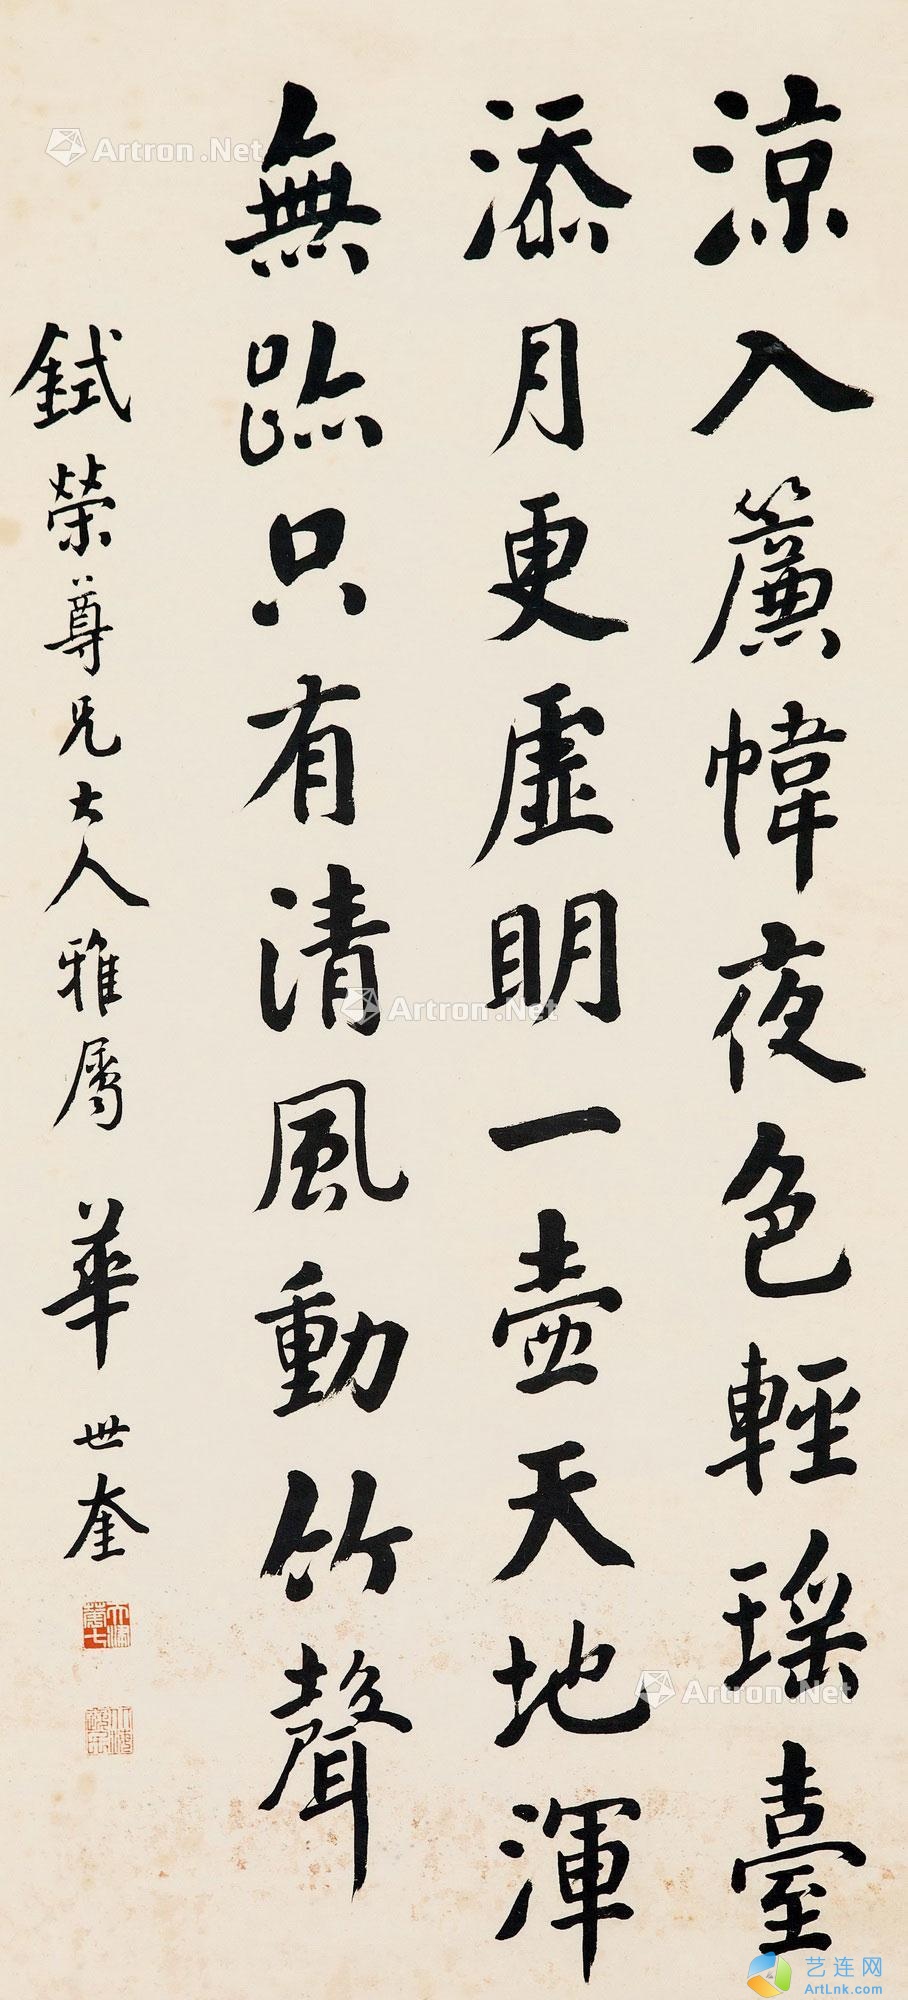 涼入簾幃夜色輕瑤臺
添月更虛明一壺天地渾
無跡只有清風動竹聲
鉽榮尊兄大人雅屬 華世奎
Artron.Net
Artron.Net
Artron.Net
艺连网
ArtLnk.com